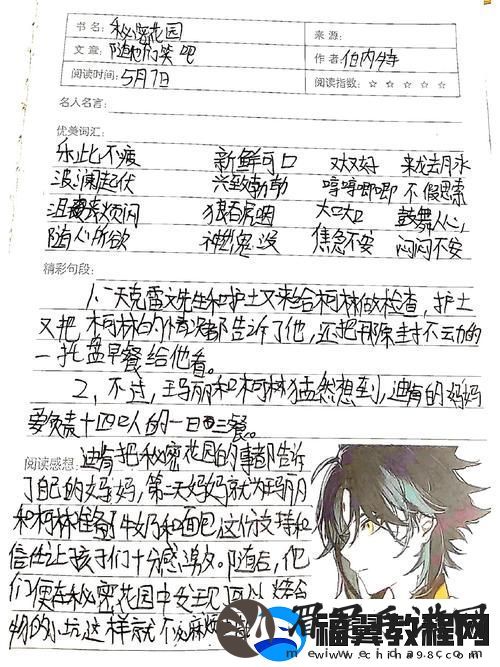 书名：秘密花园 来源：
文章：随他们笑吧 作者：伯内特
阅读时间：5月7日 阅读指数：☆ ☆ ☆ ☆ ☆
名人名言：
优美词汇：
乐此不疲 新鲜可口 对对好
波澜起伏 兴致勃勃 哼哼唧唧 不假思索
沮丧烦闷 狼吞虎咽 大口大口 鼓舞人心
随心所欲 神出鬼没 焦急不安 闷闷不安
精彩句段：
1、一天克雷文先生和护士又来给柯林做检查，护士
又把柯林的情况都告诉了他，还把那原封不动的
一托盘早餐给他看。
2、不过，玛丽和柯林猛然想到，迪肯的妈妈
要负责十四口人的一日三餐。
阅读感想：迪肯把秘密花园的事都告诉
了自己的妈妈，第二天妈妈就为玛丽
和柯林准备了牛奶和面包这份支持和
信任让孩子们十分感激。随后，他
们便在秘密花园中发现可以烤食
物的小坑这样就不麻烦
福翼教程网
www.china98.com